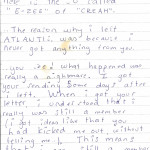 here is the
"E-ZEEF" of "CREAM".
The reason why i left
ATLANTIS was because i
never got anything from you.
you see what happened was
really a nightmare. I got
your sending some days after
i left. When i got your
letter, i understand that i
really was still a member
i think like that you
had kicked me out, without
telling me). This means
that i am still a member